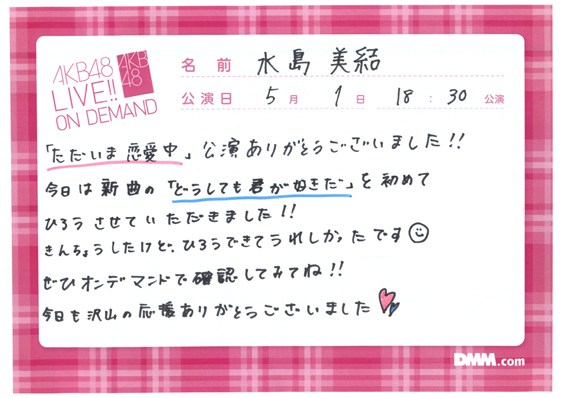 AKB48
LIVE!!
ON DEMAND
AKB
48
名前 水島 美結
公演日 5月 1日 18:30 公演
「ただいま 恋愛中」公演ありがとうございました!!
今日は新曲の「どうしても君が好きだ」を初めて
ひろうさせていただきました!!
きんちょうしたけど、ひろうできてうれしかったです
ぜひオンデマンドで確認してみてね!!
今日も沢山の応援ありがとうございました
DMM.com